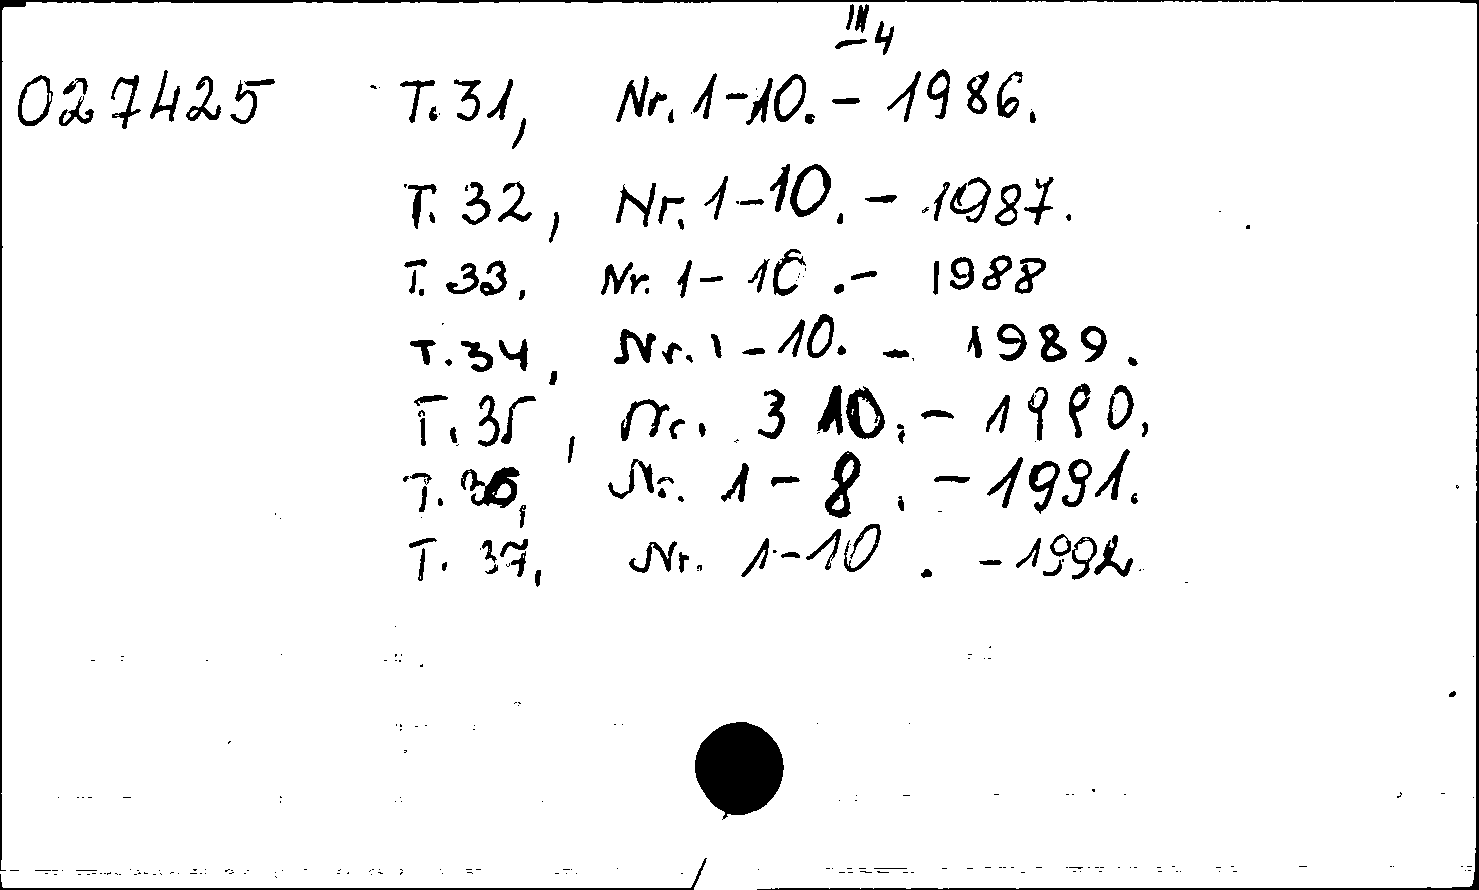 III 4
027425 T. 31, Nr. 1-10. - 1986.
T. 32, Nr. 1-10. - 1987.
T. 33, Nr. 1-10. - 1988
T. 34, Nr. 1-10. - 1989.
T. 35, Nr. 3 10. - 1990.
T. 36, Nr. 1-8. - 1991.
T. 37, Nr. 1-10. - 1992